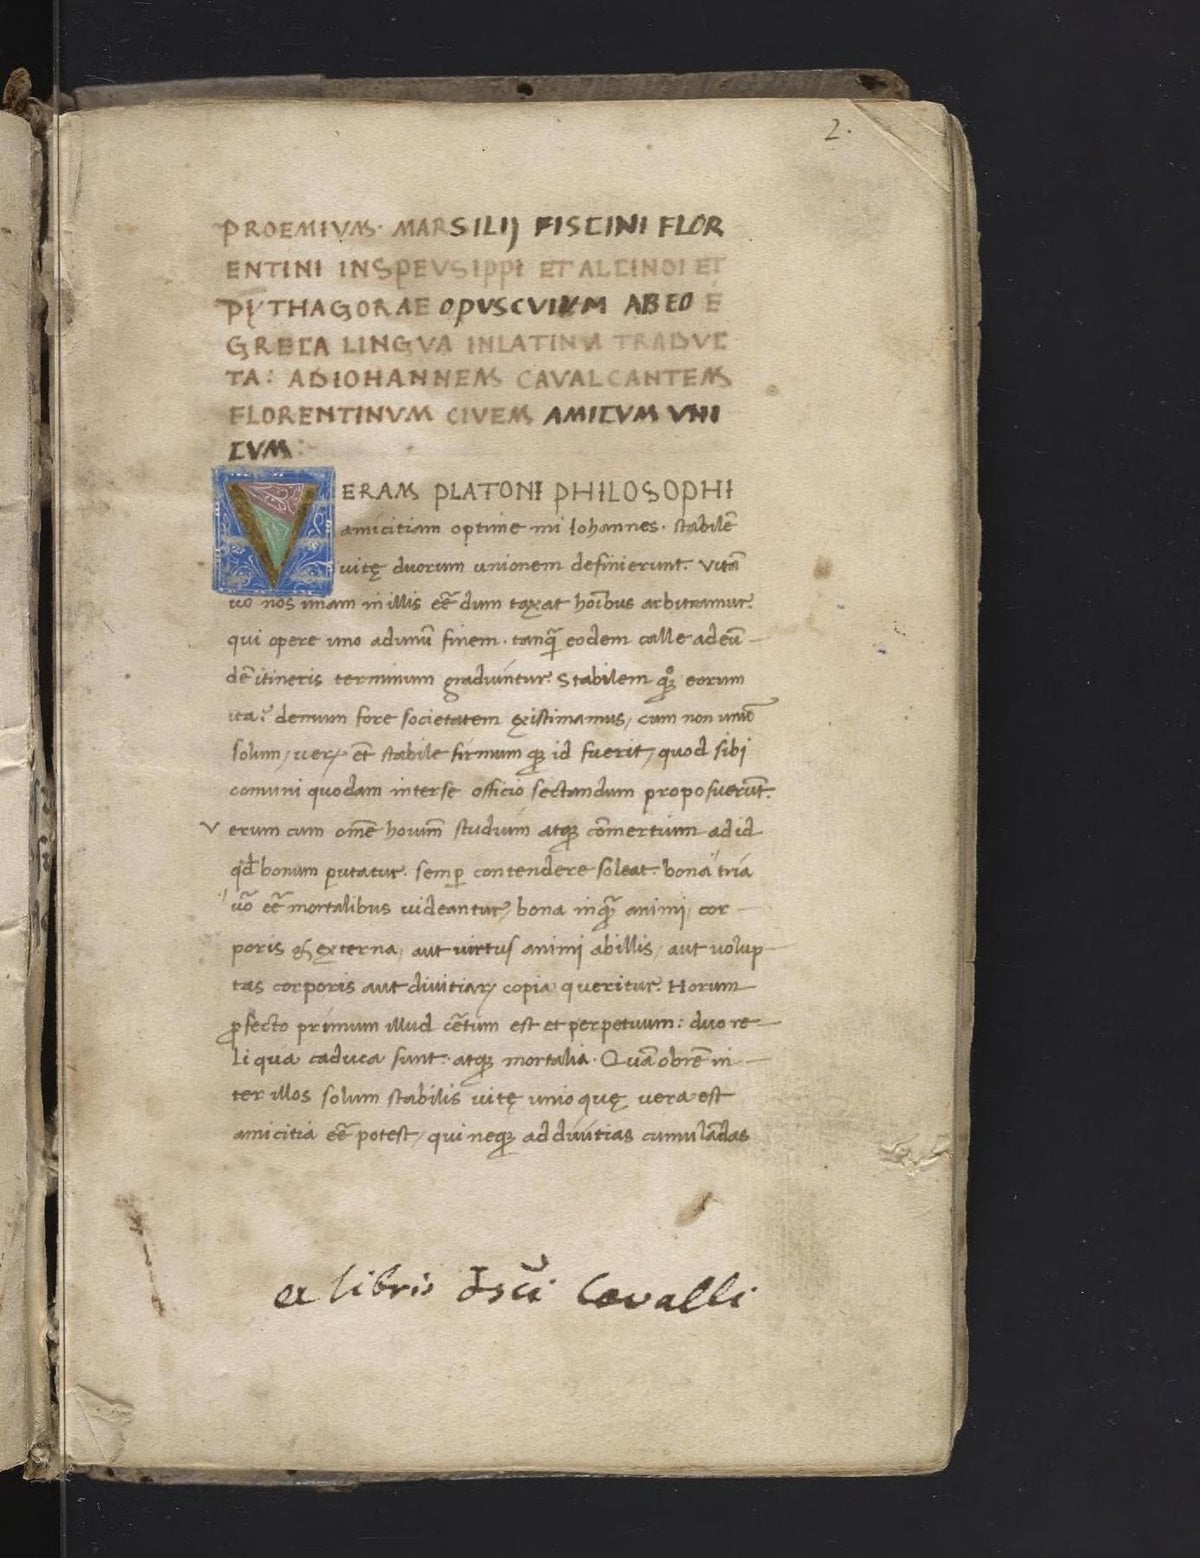 2.
PROEMIVM· MARSILIJ FISCINI FLOR
ENTINI INSPEVSIPPI ET ALCINOI ET
PẏTHAGORAE OPVSCVLVM AB EO E
GRECA LINGVA INLATINA TRADVC
TA: ADIOHANNEM CAVALCANTEM
FLORENTINVM CIVEM AMICVM VNI
CVM:
VERAM PLATONI PHILOSOPHI
amicitiam optime mi Iohannes· stabilē
uitę duorum unionem definierunt. Vitā
uo nos unam in illis eē dum taxat hoībus arbitramur.
qui opere uno adunū finem· tanq̄ eodem calle adeū
dē itineris terminum gradiuntur. Stabilem qȝ eorum
ita demum fore societatem ęxistimamus, cum non unū
solum, ueꝝ et stabile firmum qȝ id fuerit, quod sibi
comuni quodam interse officio sectandum proposuerūt.
Verum cum omē houm̄ studium atqȝ cōmertium ad id
qđ bonum putatur. semp̱ contendere soleat. bona tria
uō eē mortalibus uideantur, bona inquā animi, cor
poris & ęxterna, aut uirtus animi abillis, aut uolup
tas corporis aut diuitiaꝝ copia queritur. Horum
ꝓfecto primum illud cētum est et perpetuum: duo re
liqua caduca sunt. atqȝ mortalia. Quāobrē in
ter illos solum stabilis uitę unio quę uera est
amicitia eē potest, qui neqȝ ad diuitias cumulādas
ex libris Cavalli